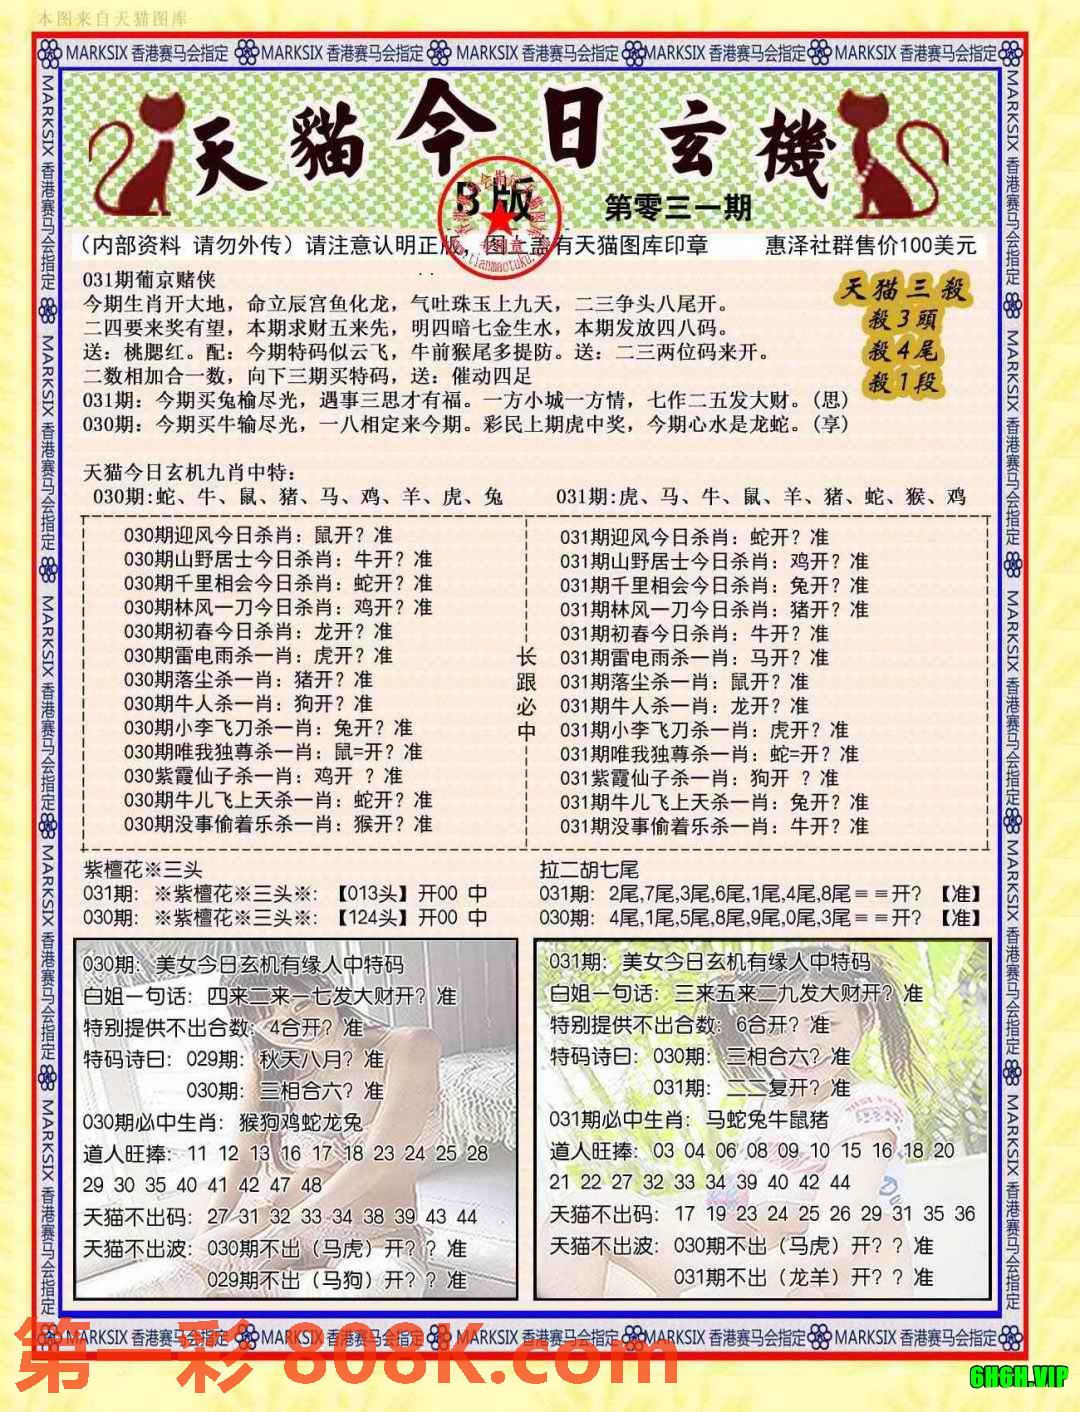 本图来自天猫图库
MARKSIX 香港赛马会指定 MARKSIX 香港赛马会指定 MARKSIX 香港赛马会指定 MARKSIX 香港赛马会指定 MARKSIX 香港赛马会指定
天貓今日玄機
B版
第零三一期
(内部资料 请勿外传) 请注意认明正版,图上盖有天猫图库印章 惠泽社群售价100美元
031期葡京赌侠
今期生肖开大地,命立辰宫鱼化龙,气吐珠玉上九天,二三争头八尾开。
二四要来奖有望,本期求财五来先,明四暗七金生水,本期发放四八码。
送:桃腮红。配:今期特码似云飞,牛前猴尾多提防。送:二三两位码来开。
二数相加合一数,向下三期买特码,送:催动四足
031期:今期买兔榆尽光,遇事三思才有福。一方小城一方情,七作二五发大财。(思)
030期:今期买牛输尽光,一八相定来今期。彩民上期虎中奖,今期心水是龙蛇。(享)
天猫三殺
殺3頭
殺4尾
殺1段
天猫今日玄机九肖中特:
030期:蛇、牛、鼠、猪、马、鸡、羊、虎、兔
031期:虎、马、牛、鼠、羊、猪、蛇、猴、鸡
030期迎风今日杀肖:鼠开?准
030期山野居士今日杀肖:牛开?准
030期千里相会今日杀肖:蛇开?准
030期林风一刀今日杀肖:鸡开?准
030期初春今日杀肖:龙开?准
030期雷电雨杀一肖:虎开?准
030期落尘杀一肖:猪开?准
030期牛人杀一肖:狗开?准
030期小李飞刀杀一肖:兔开?准
030期唯我独尊杀一肖:鼠=开?准
030紫霞仙子杀一肖:鸡开 ?准
030期牛儿飞上天杀一肖:蛇开?准
030期没事偷着乐杀一肖:猴开?准
长跟必中
031期迎风今日杀肖:蛇开?准
031期山野居士今日杀肖:鸡开?准
031期千里相会今日杀肖:兔开?准
031期林风一刀今日杀肖:猪开?准
031期初春今日杀肖:牛开?准
031期雷电雨杀一肖:马开?准
031期落尘杀一肖:鼠开?准
031期牛人杀一肖:龙开?准
031期小李飞刀杀一肖:虎开?准
031期唯我独尊杀一肖:蛇=开?准
031紫霞仙子杀一肖:狗开 ?准
031期牛儿飞上天杀一肖:兔开?准
031期没事偷着乐杀一肖:牛开?准
紫檀花※三头
031期: ※紫檀花※三头※: 【013头】开00 中
030期: ※紫檀花※三头※: 【124头】开00 中
拉二胡七尾
031期: 2尾,7尾,3尾,6尾,1尾,4尾,8尾==开? 【准】
030期: 4尾,1尾,5尾,8尾,9尾,0尾,3尾==开? 【准】
030期: 美女今日玄机有缘人中特码
白姐一句话: 四来二来一七发大财开? 准
特别提供不出合数: 4合开? 准
特码诗曰: 029期: 秋天八月? 准
030期: 三相合六? 准
030期必中生肖: 猴狗鸡蛇龙兔
道人旺捧: 11 12 13 16 17 18 23 24 25 28
29 30 35 40 41 42 47 48
天猫不出码: 27 31 32 33 34 38 39 43 44
天猫不出波: 030期不出(马虎)开? ? 准
029期不出(马狗)开? ? 准
031期: 美女今日玄机有缘人中特码
白姐一句话: 三来五来二九发大财开? 准
特别提供不出合数: 6合开? 准
特码诗曰: 030期: 三相合六? 准
031期: 二二复开? 准
031期必中生肖: 马蛇兔牛鼠猪
道人旺捧: 03 04 06 08 09 10 15 16 18 20
21 22 27 32 33 34 39 40 42 44
天猫不出码: 17 19 23 24 25 26 29 31 35 36
天猫不出波: 030期不出(马虎)开? ? 准
031期不出(龙羊)开? ? 准
MARKSIX 香港赛马会指定 MARKSIX 香港赛马会指定 MARKSIX 香港赛马会指定 MARKSIX 香港赛马会指定 MARKSIX 香港赛马会指定
第一彩 808K.com
6HGH.VIP